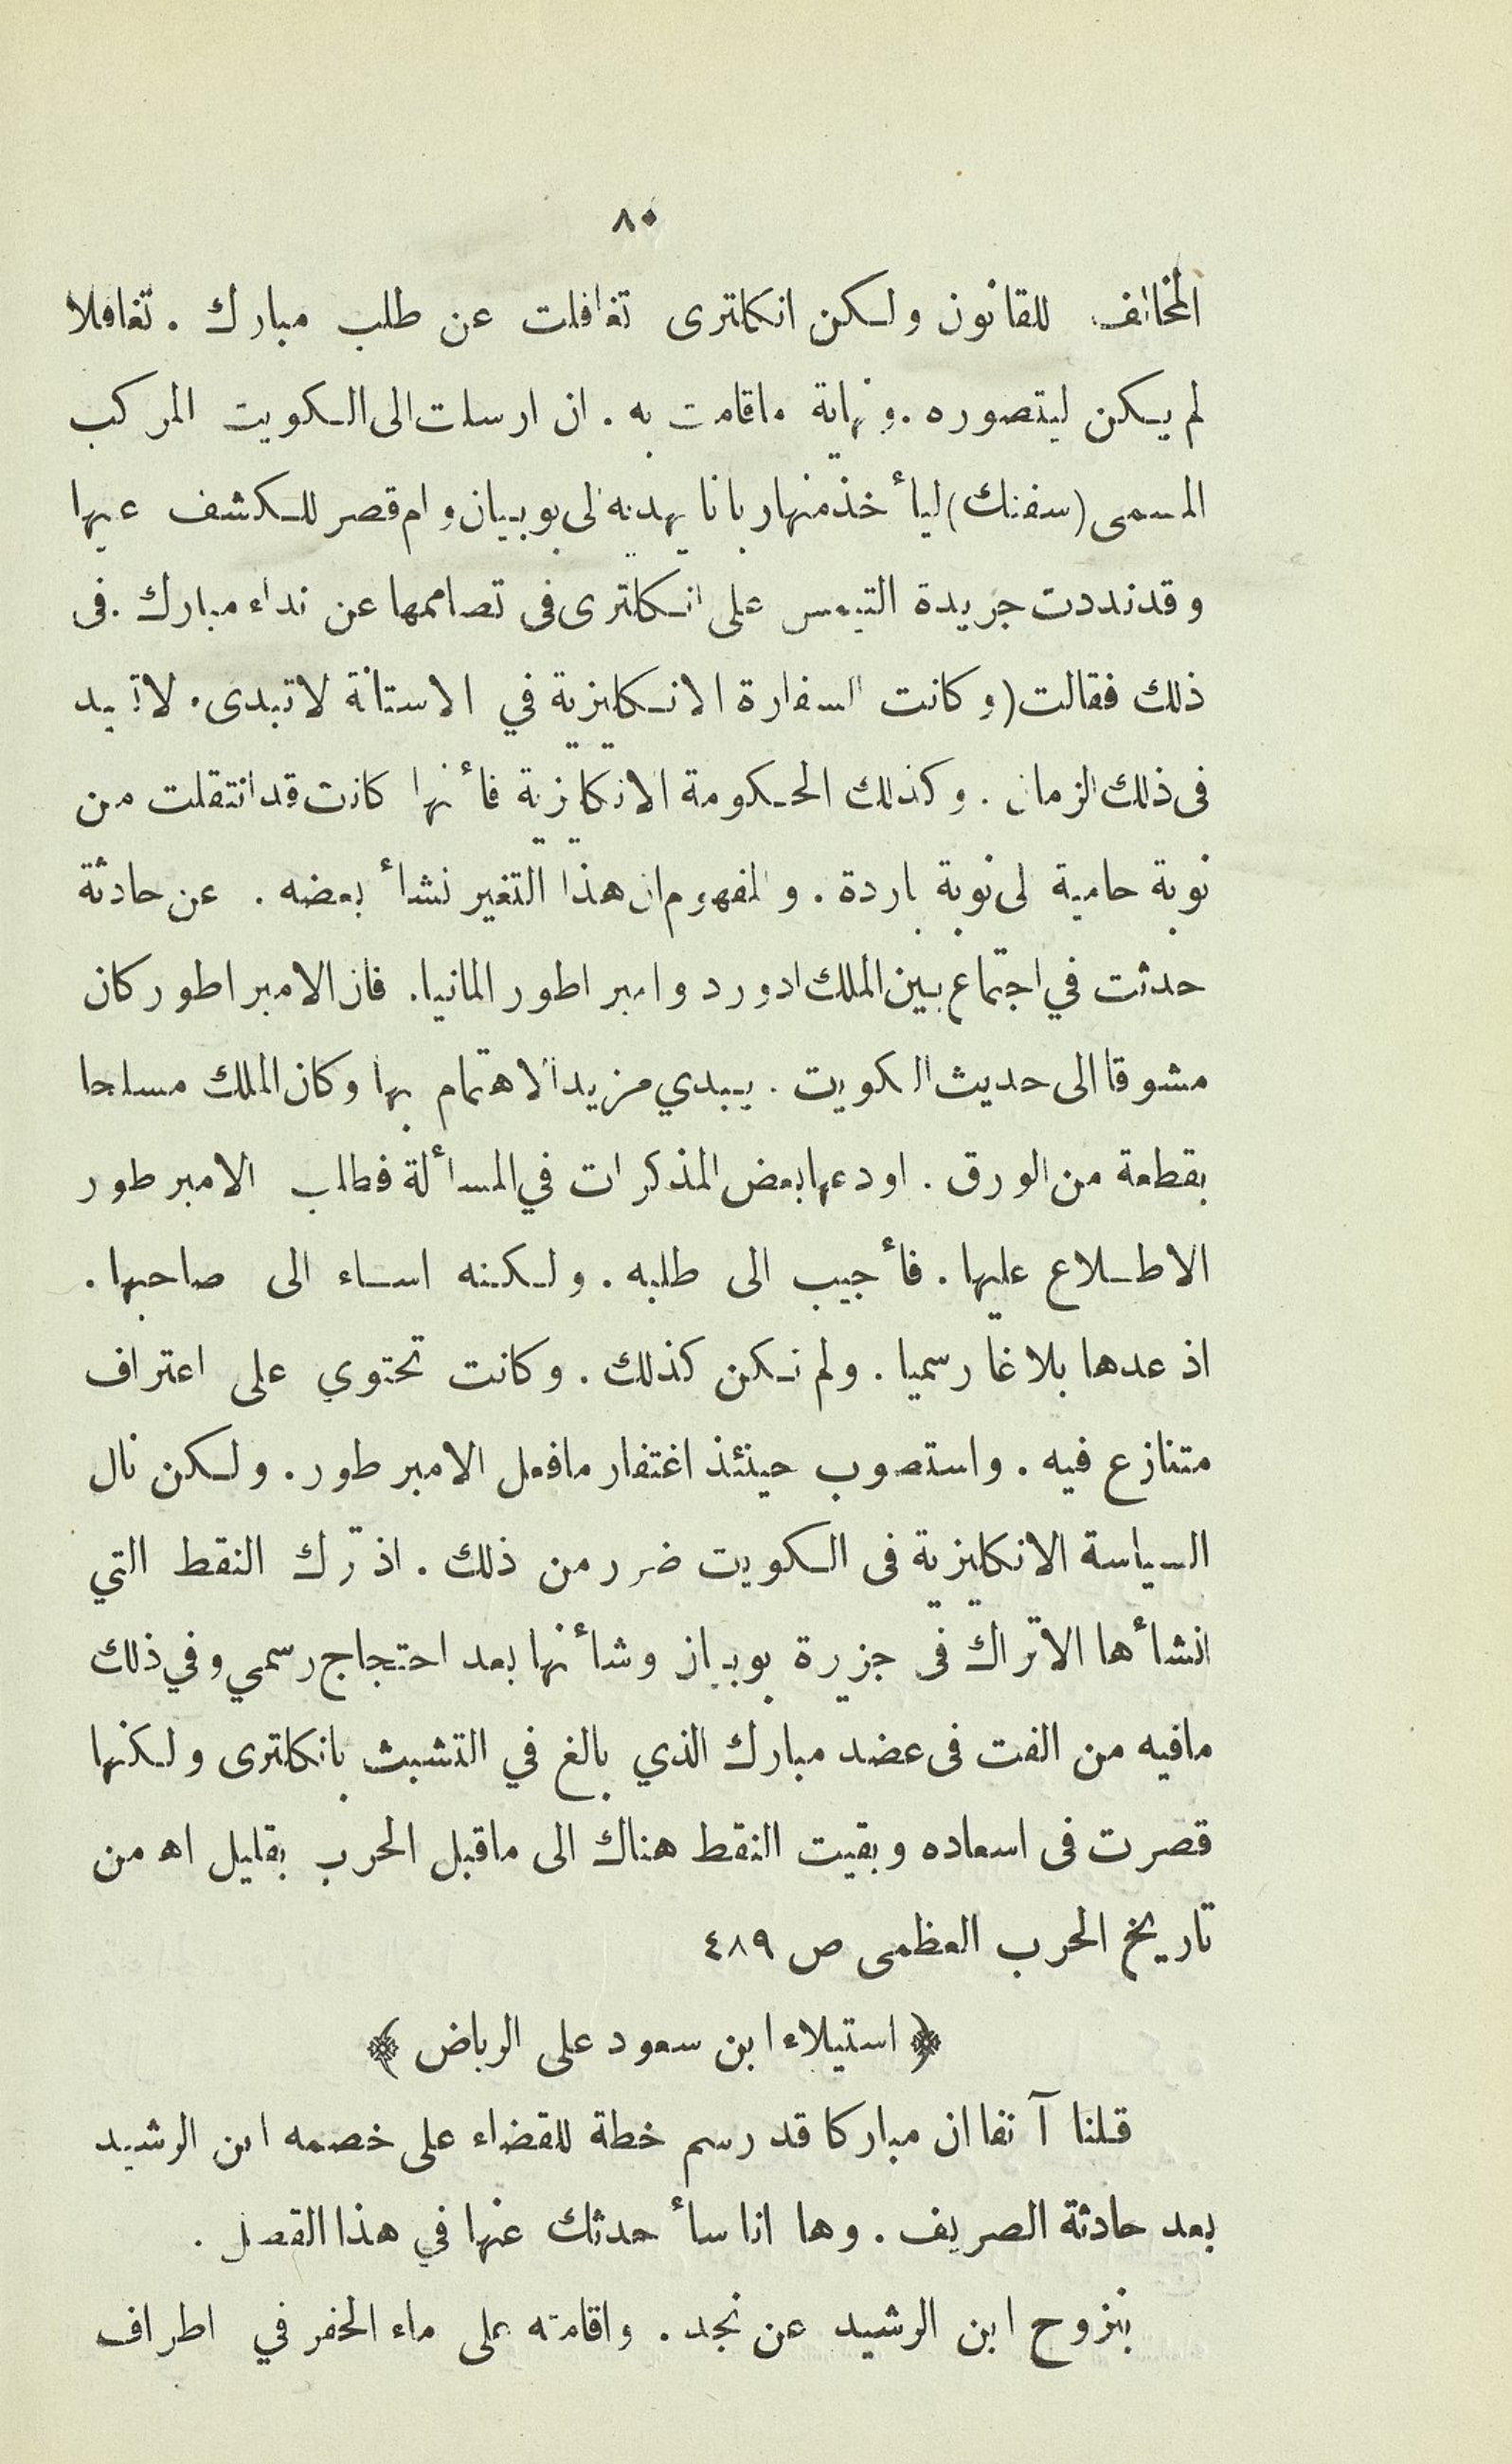 ٨٠
المخالف للقانون ولكن انكلترى تغافلت عن طلب مبارك . تغافلا
لم يكن ليتصوره . ونهاية ماقامت به . ان ارسلت الى الكويت المركب
المسمى (سفنك) ليأخذ منها ربانا يهديه الى بوبيان وام قصر للكشف عنها
وقد نددت جريدة التيمس على انكلترى فى تصاممها عن نداء مبارك . فى
ذلك فقالت (وكانت السفارة الانكليزية في الاستانة لا تبدىء ولا تعيد
فى ذلك الزمان . وكذلك الحكومة الانكليزية فأنها كانت قد انتقلت من
نوبة حامية الى نوبة باردة . والمفهوم ان هذا التغير نشأ بعضه . عن حادثة
حدثت في اجتماع بين الملك ادورد وامبراطور المانيا . فان الامبراطور كان
مشوقا الى حديث الكويت . يبدي مزيد الاهتمام بها وكان الملك مسلحا
بقطعة من الورق . اودعها بعض المذكرات في المسألة فطلب الامبرطور
الاطلاع عليها . فأجيب الى طلبه . ولكنه اساء الى صاحبها .
اذ عدها بلاغا رسميا . ولم تكن كذلك . وكانت تحتوي على اعتراف
متنازع فيه . واستصوب حينئذ اغتفار مافعل الامبرطور . ولكن نال
السياسة الانكليزية فى الكويت ضرر من ذلك . اذ ترك النقط التي
انشأها الاتراك فى جزيرة بوبيان وشأنها بعد احتجاج رسمي وفي ذلك
مافيه من الفت فى عضد مبارك الذي بالغ في التشبث بانكلترى ولكنها
قصرت فى اسعاده وبقيت النقط هناك الى ماقبل الحرب بقليل اه من
تاريخ الحرب العظمى ص ٤٨٩
﴿ استيلاء ابن سعود على الرياض ﴾
قلنا آنفا ان مباركا قد رسم خطة للقضاء على خصمه ابن الرشيد
بعد حادثة الصريف . وها انا سأحدثك عنها في هذا الفصل .
بنزوح ابن الرشيد عن نجد . واقامته على ماء الحفر في اطراف